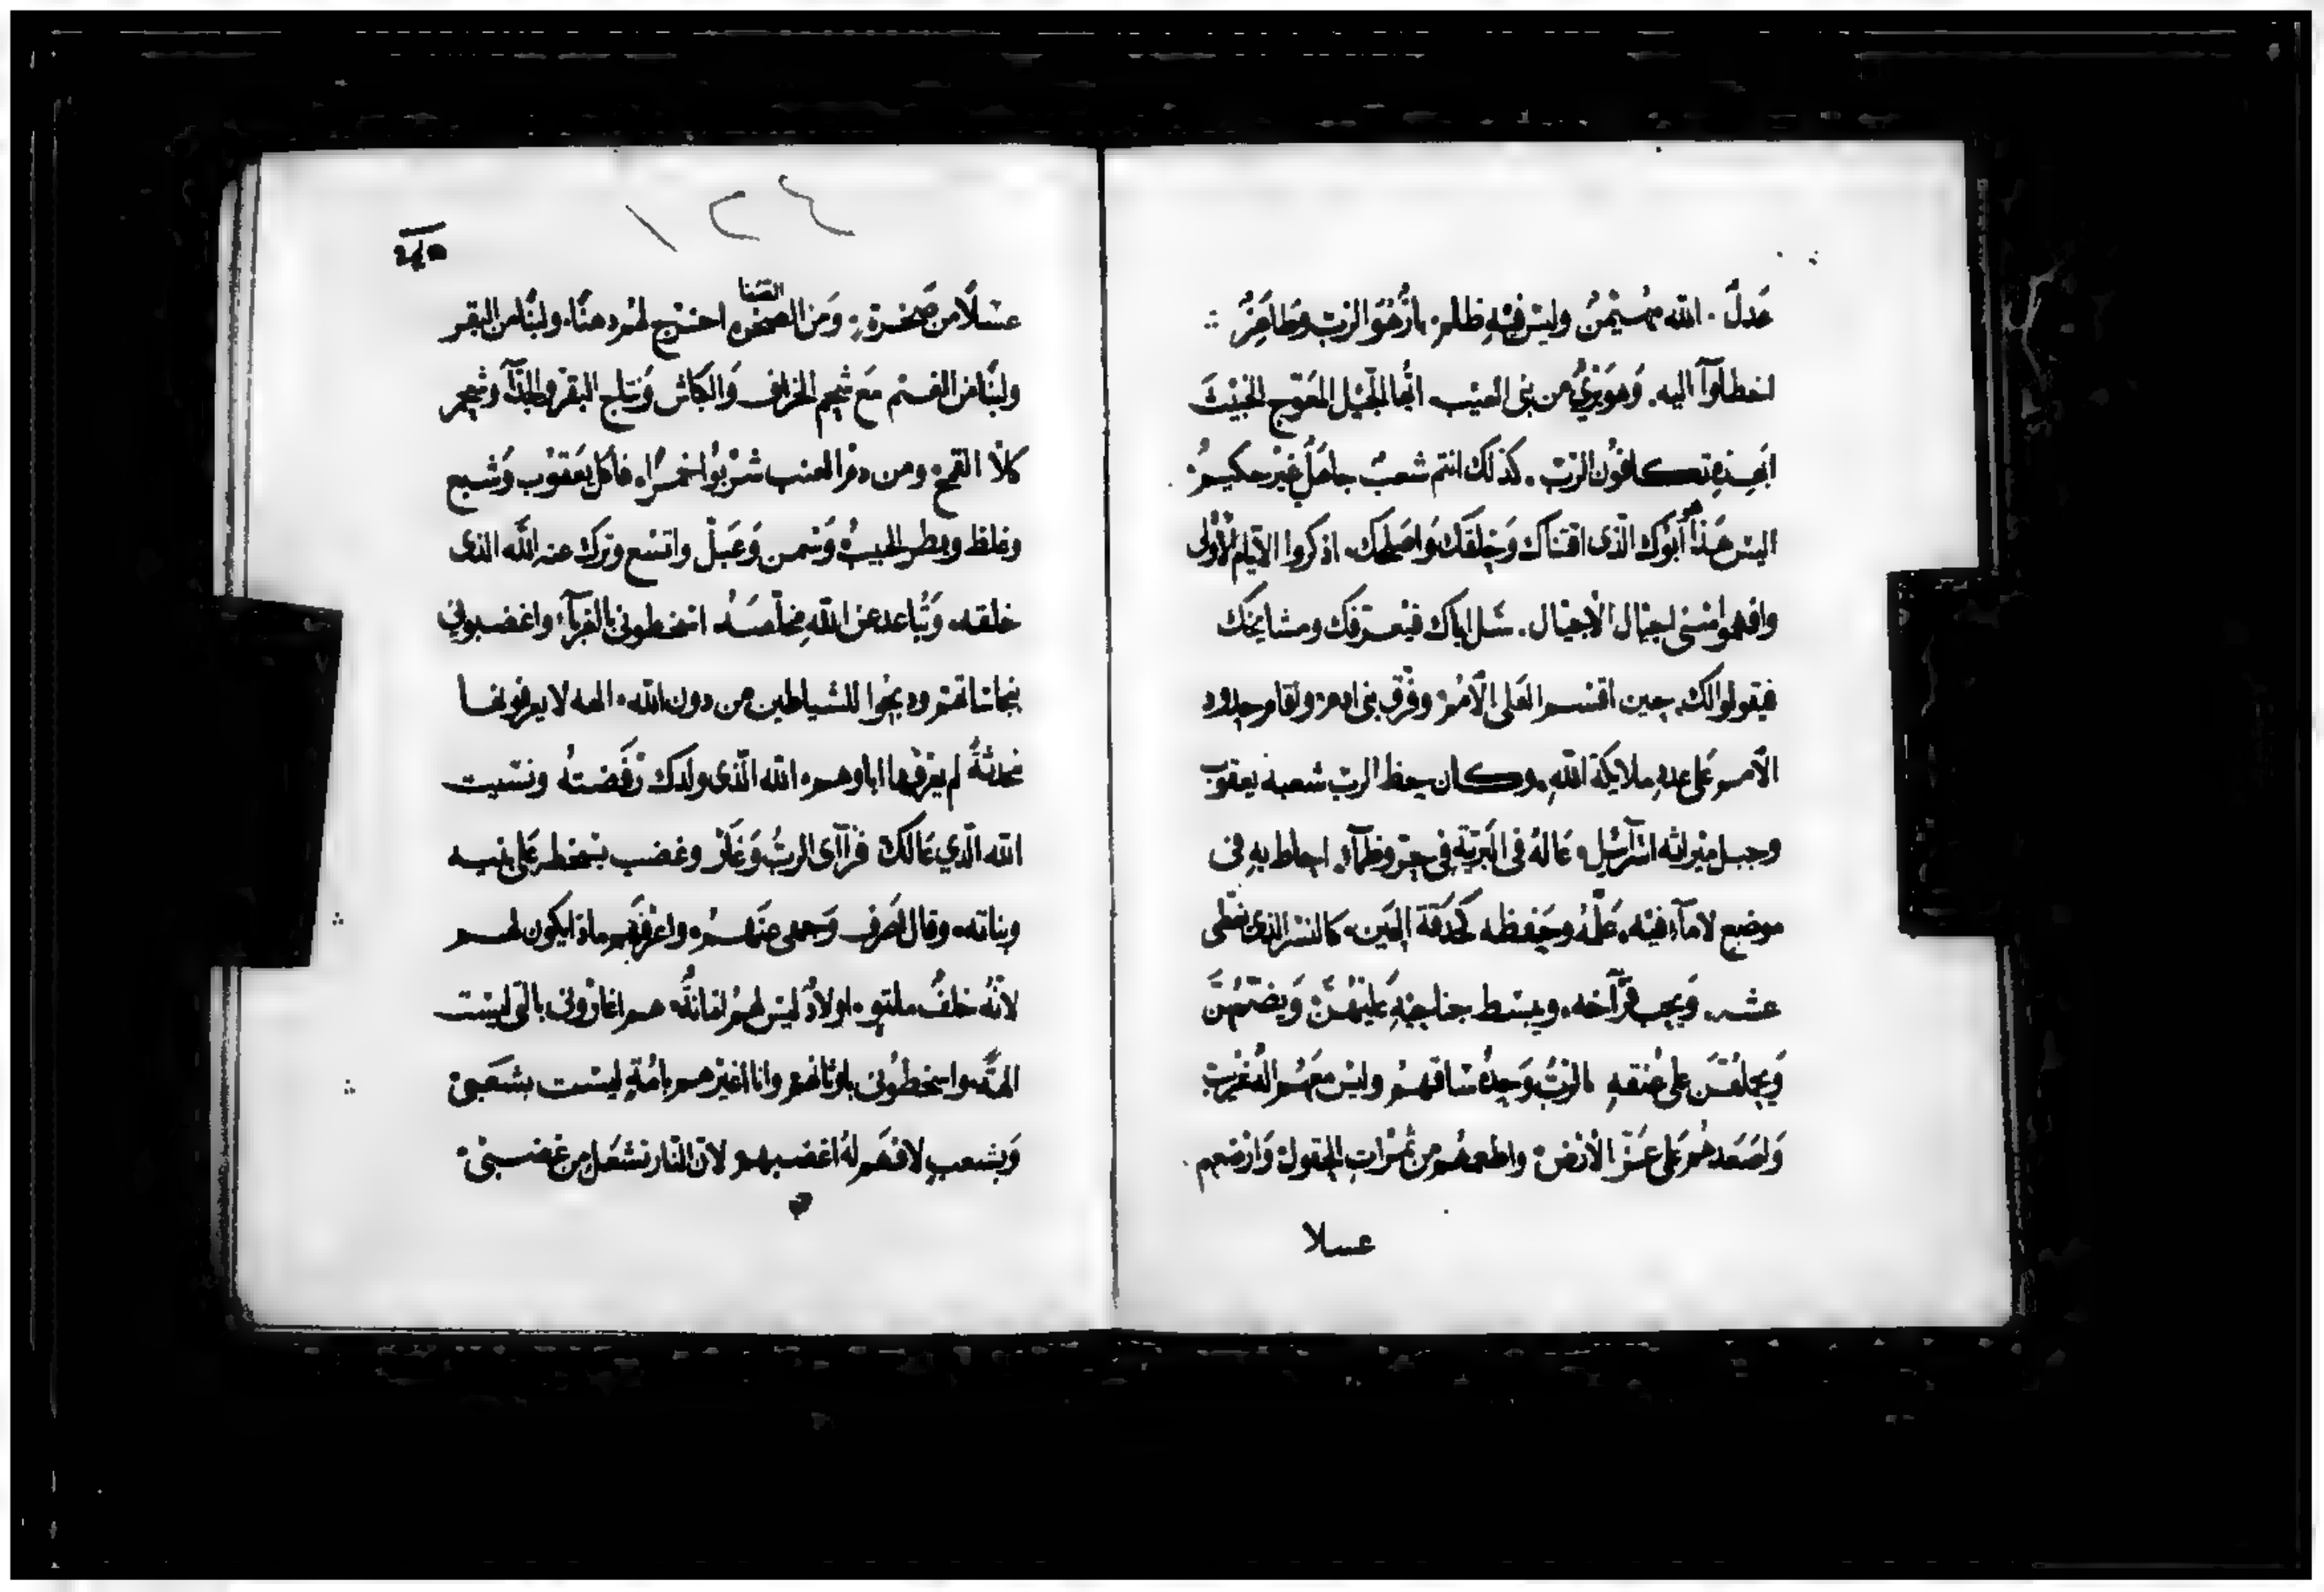 عَدلٌ. الله مهُيمنُ وليسَ فيْهِ ظلم: بارٌّ هَوَ الربّ وطاهِرٌ
اخطاوآ اليه. وَهوَ بَرِيٌ من بنى العيْب. ايُّها الجَيْل المعَوّج الخبيْث
ابهذهِ تكافوُن الربّ. كذلك انتم شعبٌ جاهلٌ غيْر حكيم
اليسَ هَذا هو ابوُك الذى اقتناك وَخلقك وَاصلحك. اذكروا الايام الاولى
وافهموا سنى اجيال الاجيال. سَل اباك فيعرّفك ومشايخك
فيقولوا لك. حين اقتسم العَلى الامم وفرّق بنى ادم: واقام حدود
الامم عَلى عدد ملايكة الله. وكان حظ الربّ شعبه يعقوب
وحبل ميراثه اسرآئيل. عَالهُ فى البَريّة فى حرّ وظمآء. احاط بهِ فى
موضع لا مآء فيْه. علّمهُ وحَفظه كحَدقة العَين. كالنسر الذى يغطى
عشه. وَيحب فرآخه. ويبسَط جناحيْهِ عليْهنّ وَيضمّهنَّ
وَيحملهُنَ على عنقهِ الربُّ وَحدهُ ساقهمْ وليس معَهم اله غريب
وَاصَعَدهُم عَلى عَزّ الارض: واطعمهُم من ثمرات الحقول وَارْضعهم
عسلا
١٢٤
عسَلاً من صَخرة: وَمن الصخره الصّفا اخرج لهُم دهنًا. ولبنًا من البقر
ولبنًا من الغنم مَع شحم الخراف وَالكباش وَنتاج البقر والجدآء وشحم
كلاَ القمح: ومن دم العنب شرْبوُا خمرًا. فاكل يَعقوُب وَشبع
وغلظ وبطر الحبيبُ وَسمن وَعَبلَ واتسَع وترك عنه الله الذى
خلقه. وَتباعد عن اللهِ مخلّصَهُ. اسخطونى بالغربآء واغضبونى
بنجاساتهم وذبحُوا للشياطين من دون الله. الهه لا يعرفونها
محدثةً لم يعَرفها اباوهم. الله الذى ولدك رَفَضتهُ ونسَيت
الله الذي عَالك فرآى الربُّ وَغَار وغضب بسخط على بنيه
وبناته. وقال اصَرف وَجهى عنَهمُ. واعرّفهم ماذا يكون لهم
لانّهُ خلفٌ ملتو. اولادٌ ليسَ لهمُ امانةٌ. هم اغارونى بالتى ليسَت
الهَةً. واسخطوُنى باوثانهمْ وانا اغيْرهم بامُةٍ ليست بشعَبى:
وَبشعب لا فهَم لهُ اغضبهم لان النار تشتعل من غضبىْ.